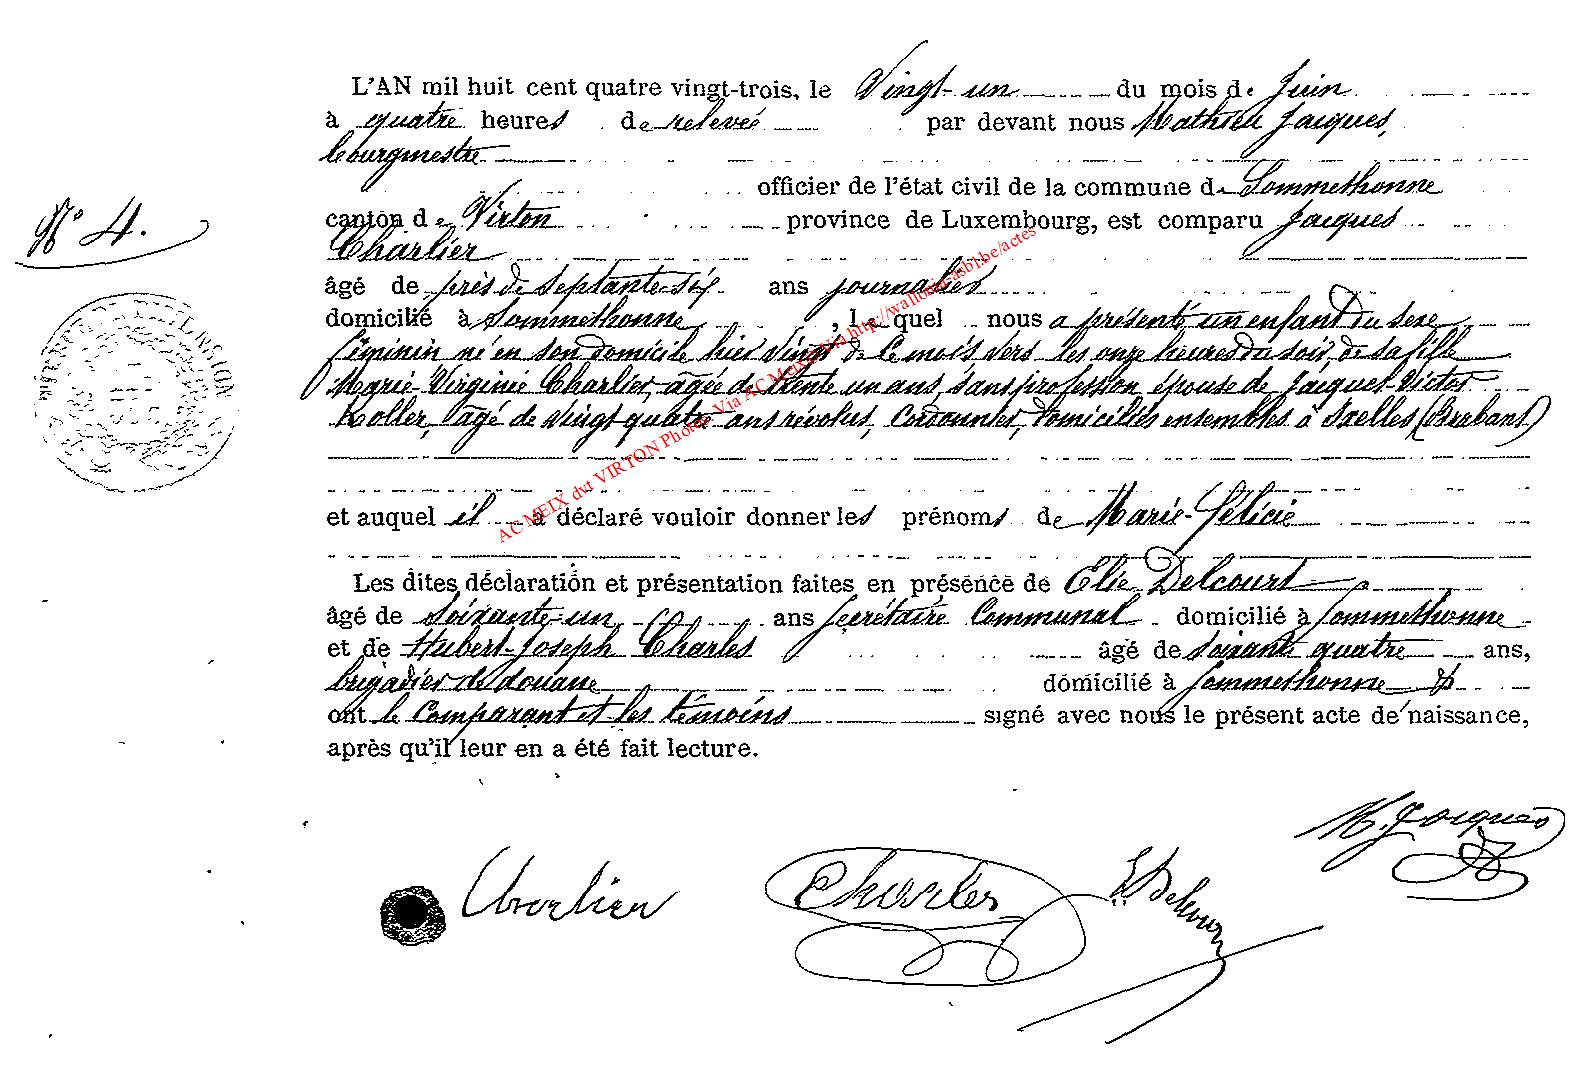 L'AN mil huit cent quatre vingt-trois, le Vingt-un du mois de Juin
à quatre heures de relevée par devant nous Mathieu Jacques,
bourgmestre
officier de l'état civil de la commune de Sommethonne
N° 4.
canton de Virton province de Luxembourg, est comparu Jacques
Charlier
âgé de près de Septante-six ans journalier
domicilié à Sommethonne, lequel nous a présenté un enfant du sexe
féminin né en son domicile hier vingt de ce mois vers les onze heures du soir, de sa fille
Marie-Virginie Charlier, agée de trente un ans, sans profession, épouse de Jacques-Victor
Koller, âgé de vingt quatre ans révolus, Cordonnier, domiciliés ensembles à Ixelles (Brabant)
et auquel il a déclaré vouloir donner les prénoms de Marie-Félicie
Les dites déclaration et présentation faites en présence de Elie Delcourt
âgé de soixante-un ans Secrétaire Communal domicilié à Sommethonne
et de Hubert-Joseph Charles âgé de soixante quatre ans,
brigadier de douane domicilié à Sommethonne
ont le Comparant et les témoins signé avec nous le présent acte de naissance,
après qu'il leur en a été fait lecture.
M. Jacques
Charlier Charles E. Delcourt
AC MEIX dvt VIRTON Photos Via AC Meix Via http://wallonia-asbl.be/actes